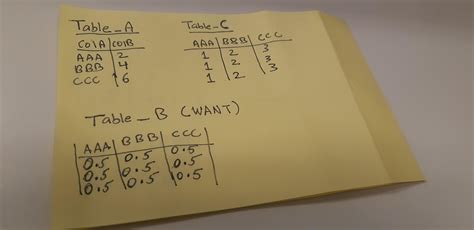 Table_A
ColA | ColB
AAA | 2
BBB | 4
CCC | 6
Table_C
AAA | BBB | CCC
1 | 2 | 3
1 | 2 | 3
1 | 2 | 3
Table_B (WANT)
AAA | BBB | CCC
0.5 | 0.5 | 0.5
0.5 | 0.5 | 0.5
0.5 | 0.5 | 0.5